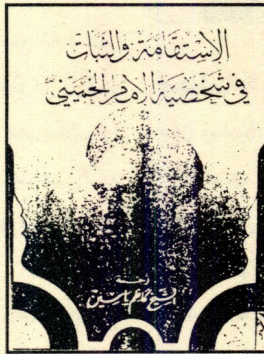 الاستقامة والثبات
في شخصية الإمام الخميني
الشيخ كاظم ياسين